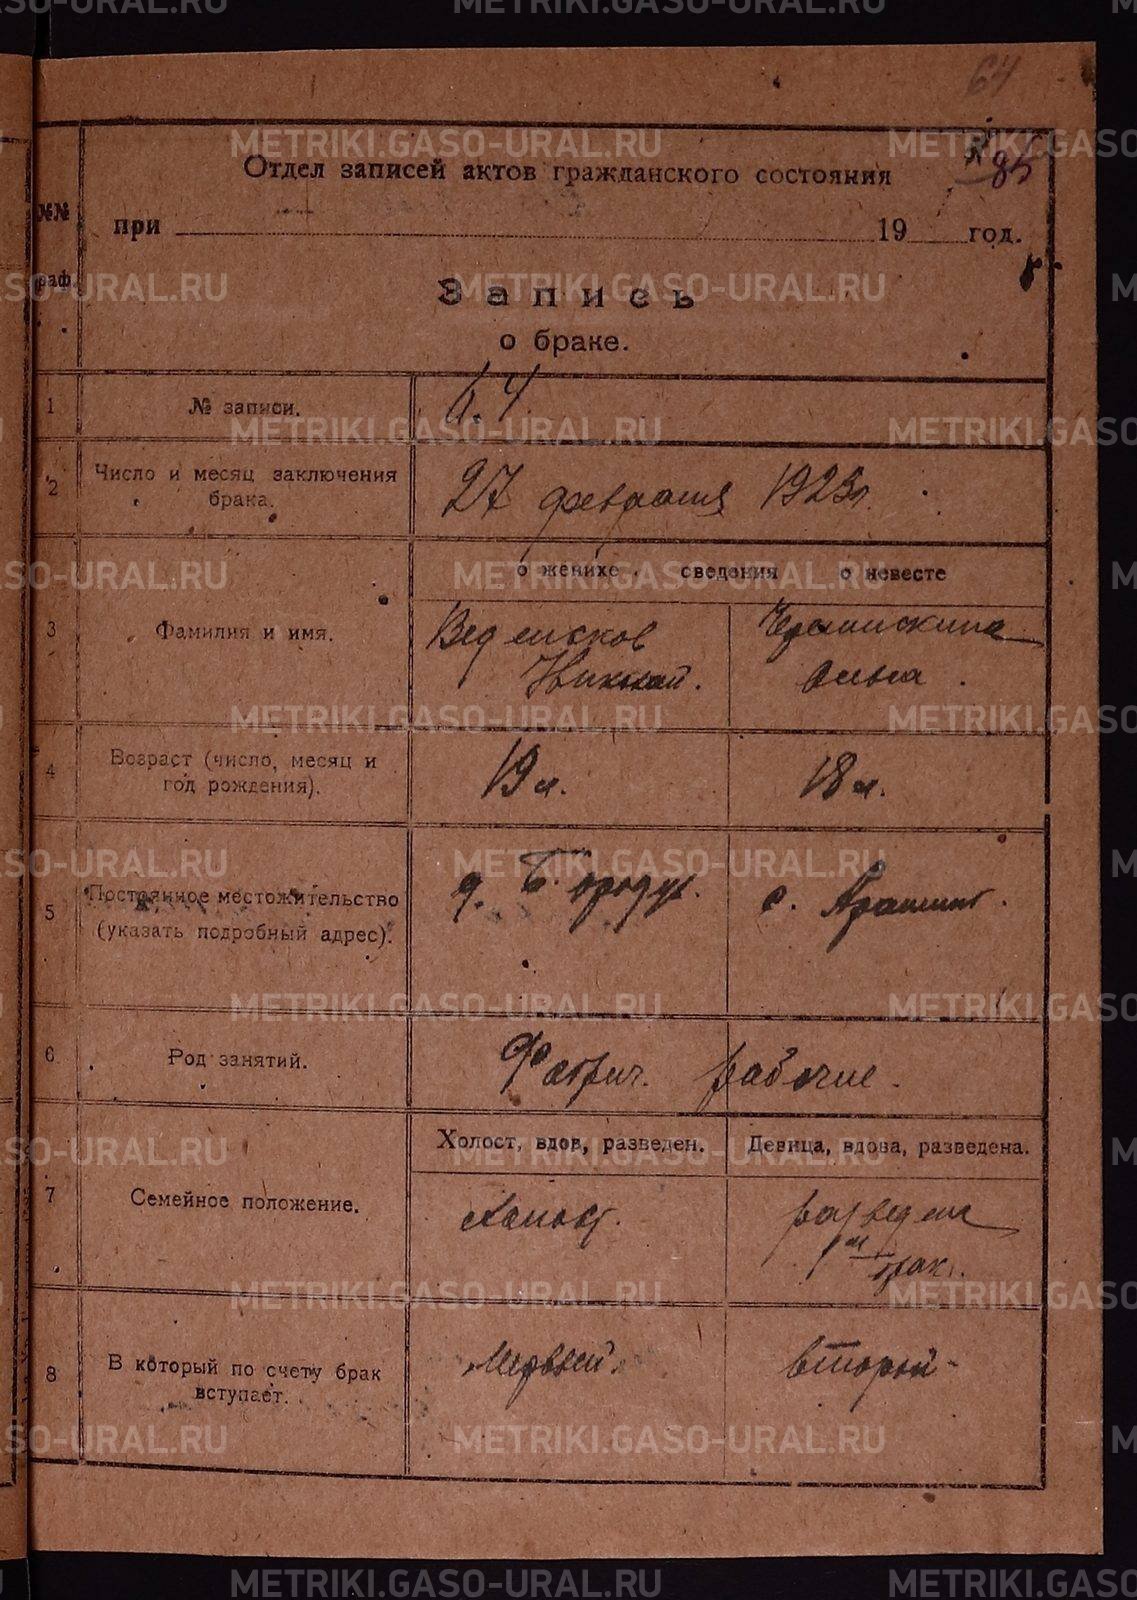 64
№ 85
Отдел записей актов гражданского состояния
№№
при 19 год.
раф.
Запись
о браке.
1 № записи.
2 Число и месяц заключения
брака.
27 февраля 1923 г.
о женихе сведения о невесте
3 Фамилия и имя.
Николай.
Ольга.
4 Возраст (число, месяц и
год рождения).
19 л. 18 л.
5 Постоянное местожительство
(указать подробный адрес).
6 Род занятий.
рабочие.
Холост, вдов, разведен. Девица, вдова, разведена.
7 Семейное положение.
Холост. разведена
брак.
8 В который по счету брак
вступает.
Первый. второй
METRIKI.GASO-URAL.RU